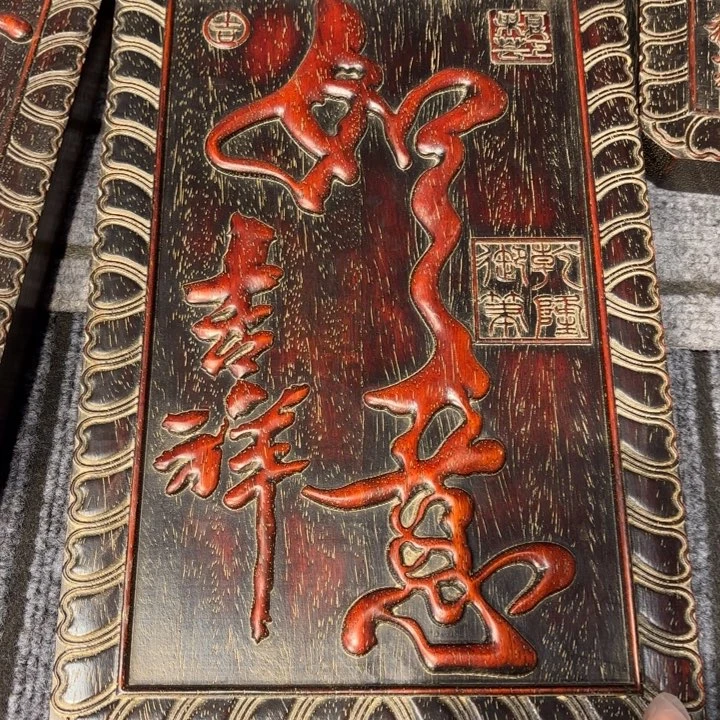 如意
吉祥
乾隆
御筆
吉